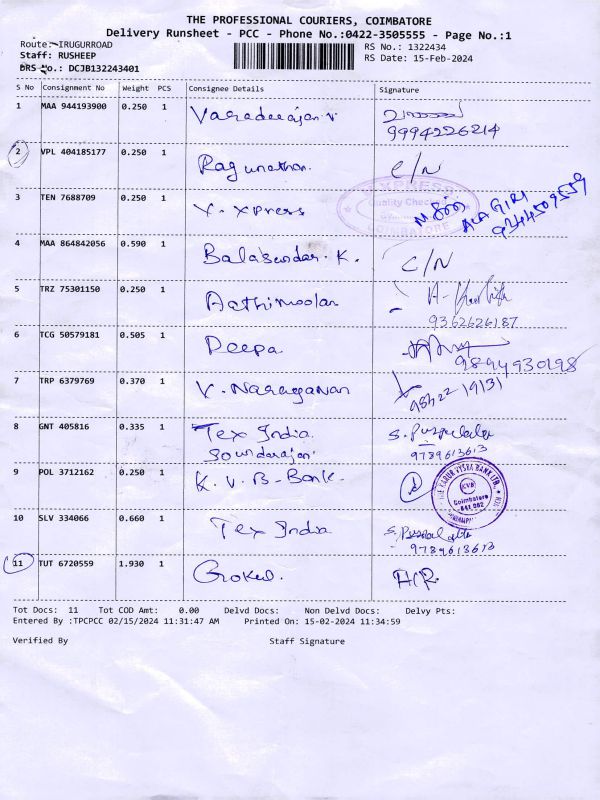 THE PROFESSIONAL COURIERS, COIMBATORE
Delivery Runsheet - PCC - Phone No.:0422-3505555 - Page No.:1
Route: IRUGURROAD
RS No.: 1322434
Staff: RUSHEEP
RS Date: 15-Feb-2024
DRS No.: DCJB132243401
S No Consignment No Weight PCS Consignee Details Signature
1 MAA 944193900 0.250 1 Varadarajan.V
9994226214
2 VPL 404185177 0.250 1 Ragunathan. C/N
3 TEN 7688709 0.250 1 X-XPress
EXPRESS
Quality Checked
COIMBATORE
9344509559
4 MAA 864842056 0.590 1 Balasundar. K. C/N
5 TRZ 75301150 0.250 1 Aathimoolam
9362626187
6 TCG 50579181 0.505 1 Deepa
9894930198
7 TRP 6379769 0.370 1 V. Narayanan
98422 19131
8 GNT 405816 0.335 1 Tex India S. Puspalatha
Soundarajan 9789613613
9 POL 3712162 0.250 1 K. V. B- Bank.
THE KARUR VYSYA BANK LTD.,
KVB
Coimbatore
641 002
10 SLV 334066 0.660 1 Tex India S. Puspalatha
9789613613
11 TUT 6720559 1.930 1 Gokul.
Tot Docs: 11 Tot COD Amt: 0.00 Delvd Docs: Non Delvd Docs: Delvy Pts:
Entered By :TPCPCC 02/15/2024 11:31:47 AM Printed On: 15-02-2024 11:34:59
Verified By Staff Signature